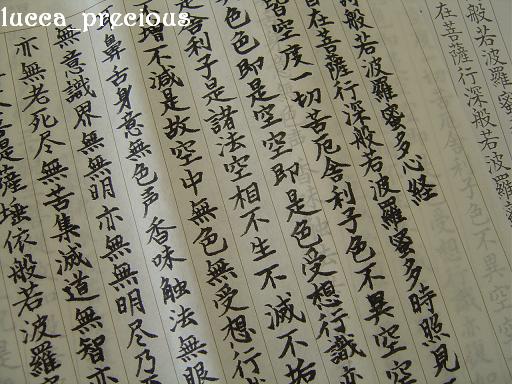 lucca_precious
般若波羅蜜
在菩薩行深般若波羅
般若波羅蜜多心経
在菩薩行深般若波羅蜜多時照見
皆空度一切苦厄舎利子色不異空空
色色即是空空即是色受想行識亦
是舎利子是諸法空相不生不滅不垢
増不減是故空中無色無受想行
鼻舌身意無色声香味触法無眼
無意識界無無明亦無無明尽乃
亦無老死尽無苦集滅道無智亦
提薩埵依般若波羅